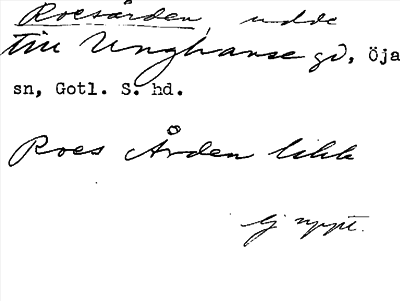 Roesården, udde
till Unghanse gd, Öja
sn, Gotl. S. hd.
Roes Ården likk
ej uppt.